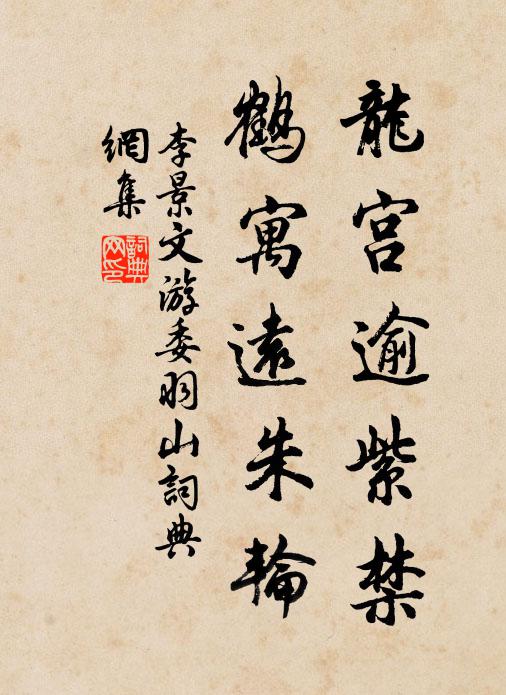 龍宮逾紫禁
鶴寓遠朱輪
李景文游委羽山詞典
網集
詞典
网印